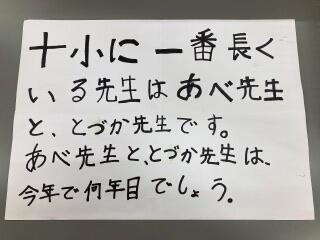 十小に一番長く
いる先生はあべ先生
と、とづか先生です。
あべ先生と、とづか先生は、
今年で何年目でしょう。